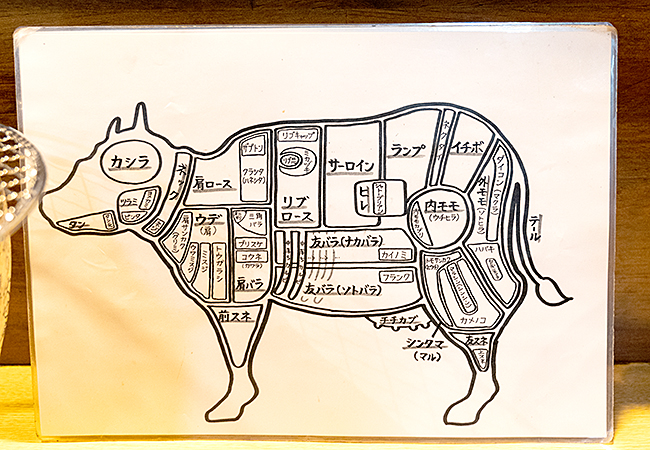 カシラ
ネック
ツラミ
タン
肩ロース
ザブトン
クラシタ
(ハネシタ)
リブキャップ
リブ
ロース
サーロイン
ヒレ
ランプ
イチボ
ダイコン(マクラ)
外モモ
内モモ
(ウチヒラ)
テール
ハバキ
ウデ
(肩)
肩サンカク
ミスジ
トウガラシ
三角
バラ
ブリスケ
コウネ
肩バラ
友バラ(ナカバラ)
カイノミ
友バラ(ソトバラ)
フランク
チチカブ
シンタマ
(マル)
カメノコ
前スネ
友スネ